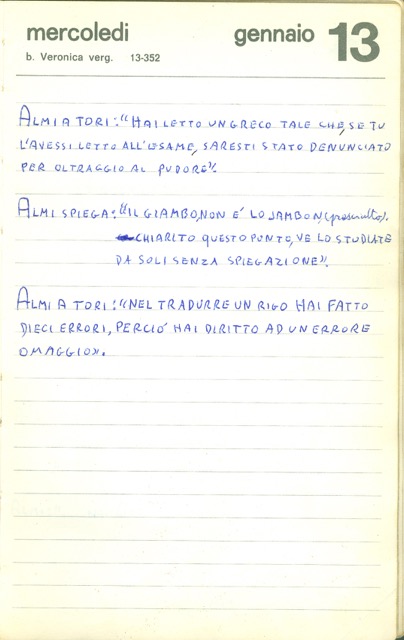 mercoledi
gennaio 13
b. Veronica verg. 13-352
ALMI A TORI: "HAI LETTO UN GRECO TALE CHE, SE TU
L'AVESSI LETTO ALL'ESAME, SARESTI STATO DENUNCIATO
PER OLTRAGGIO AL PUDORE".
ALMI SPIEGA: "IL GIAMBO, NON E' LO JAMBON, (prosciutto).
CHIARITO QUESTO PUNTO, VE LO STUDIATE
DA SOLI SENZA SPIEGAZIONE".
ALMI A TORI: "NEL TRADURRE UN RIGO HAI FATTO
DIECI ERRORI, PERCIO' HAI DIRITTO AD UN ERRORE
OMAGGIO".